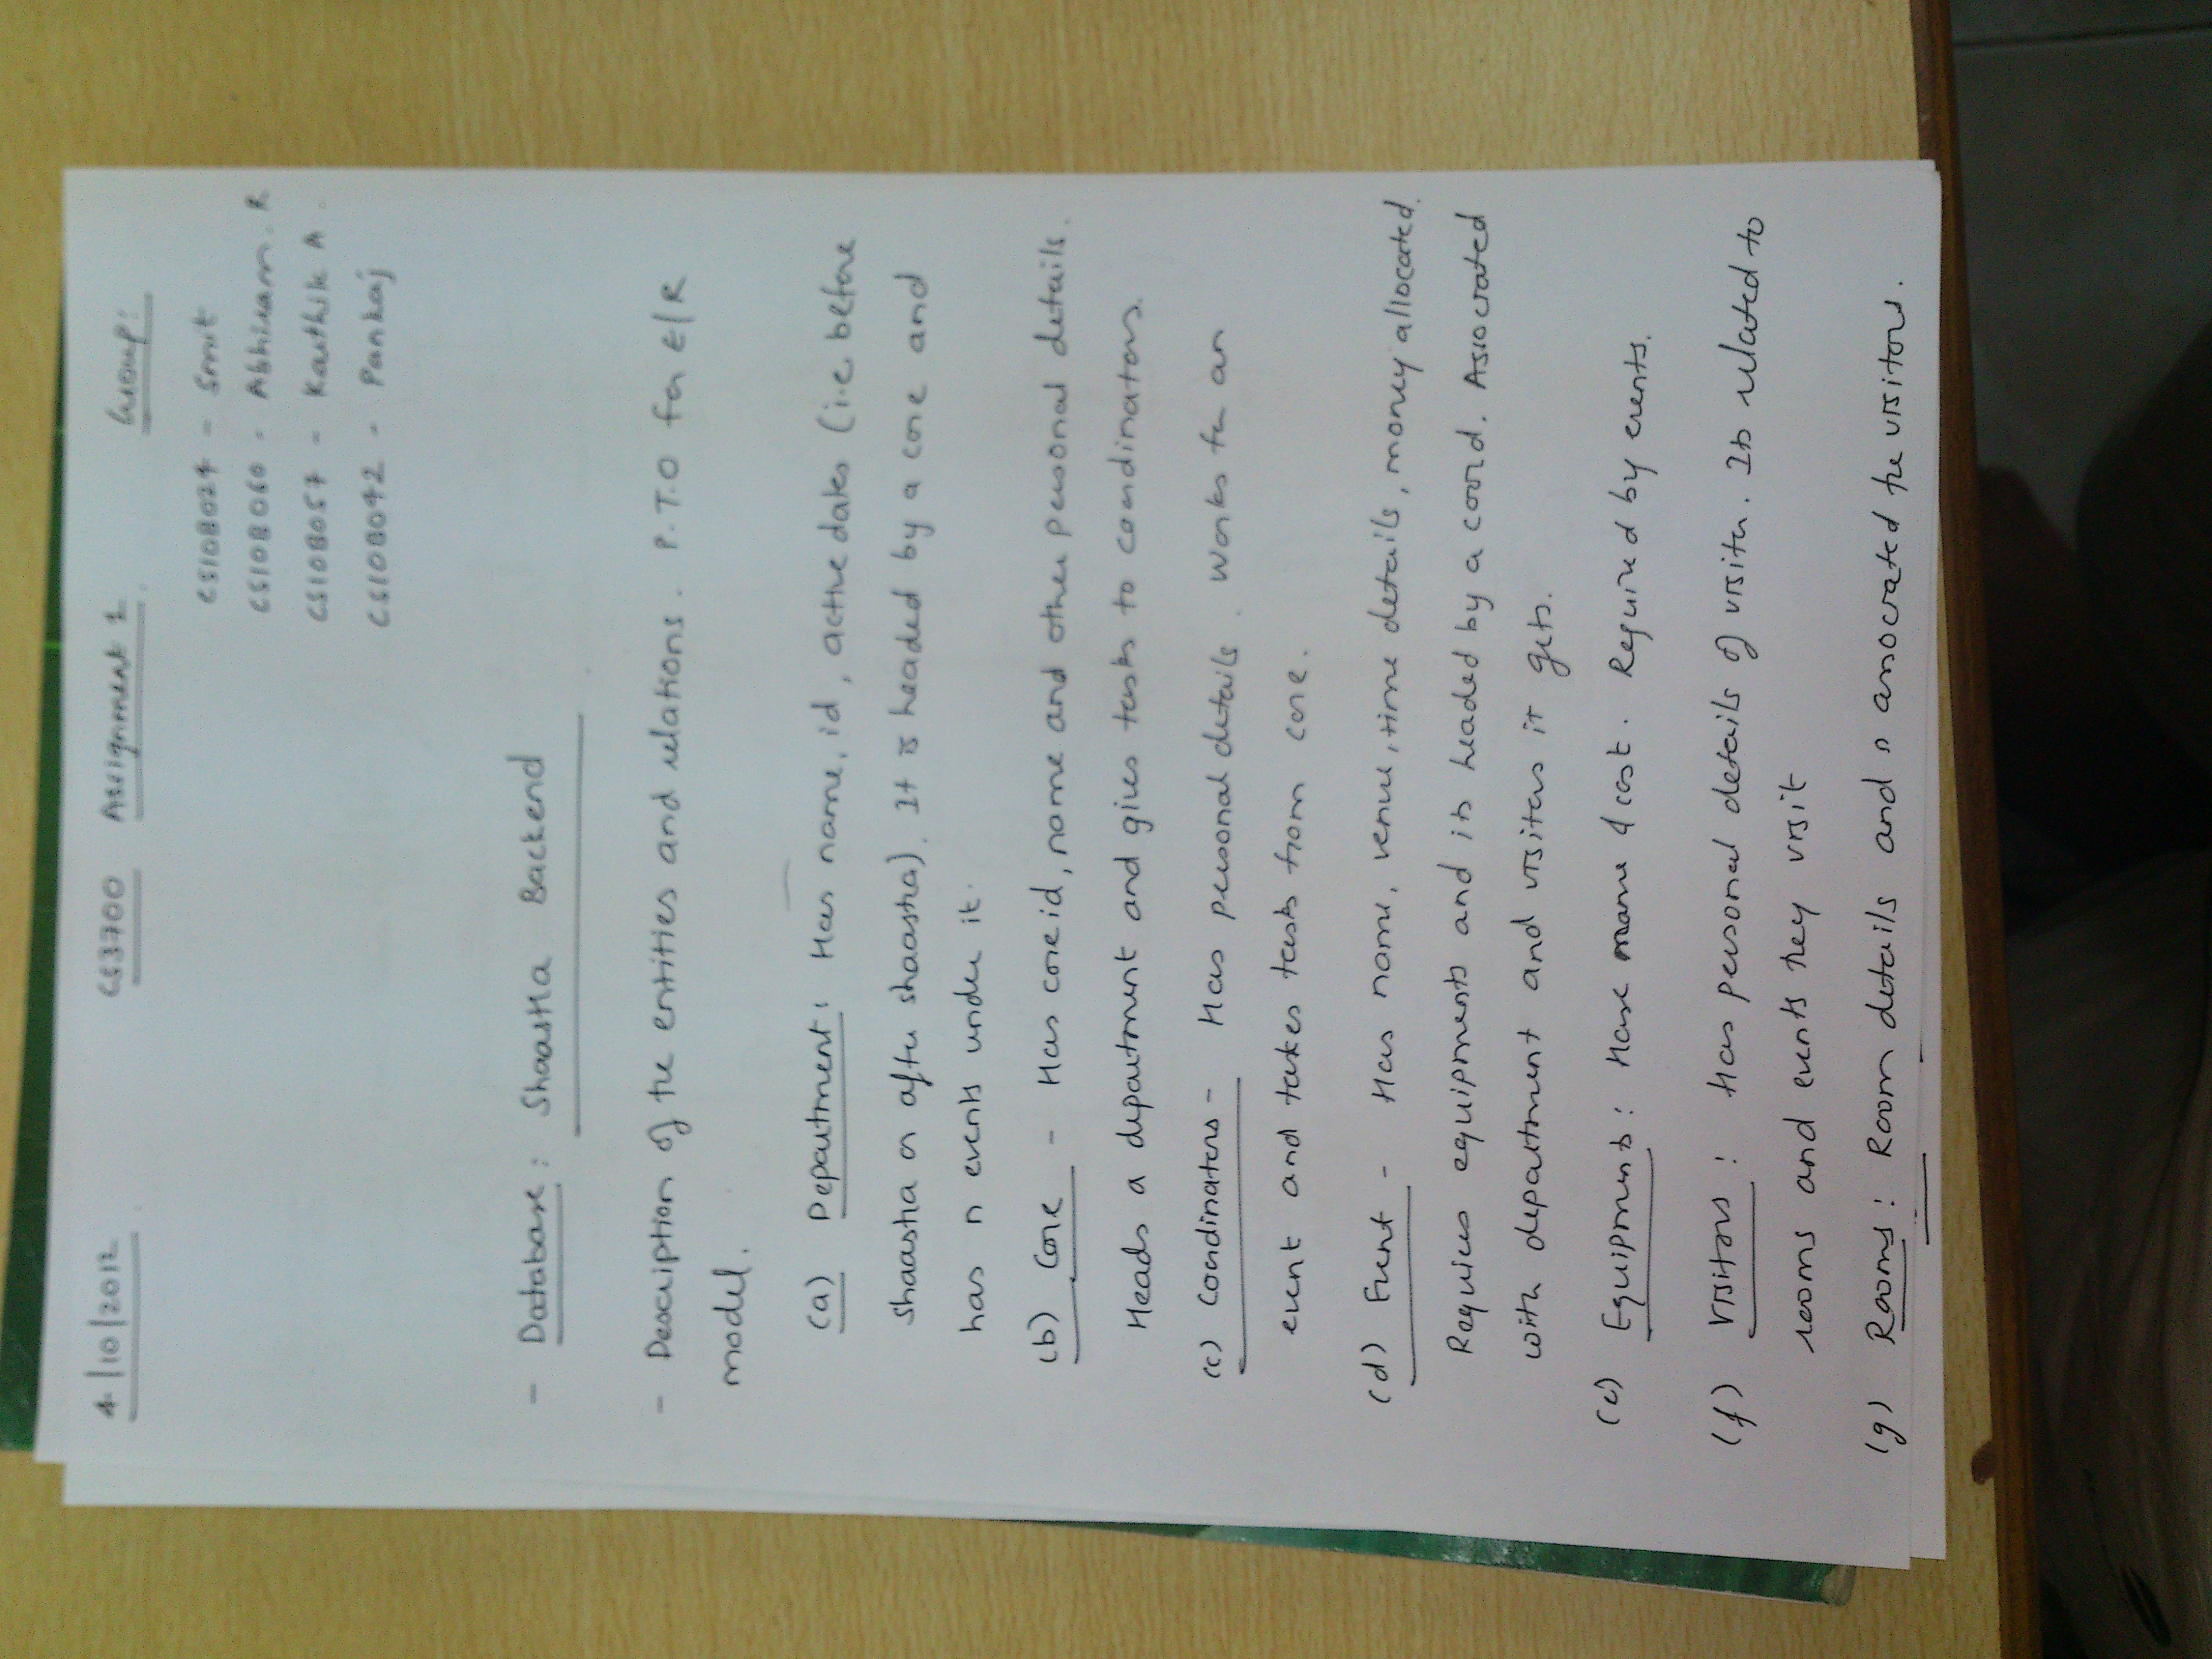 4/10/2012 CS3700 Assignment 1 Group:
CS10B024 - Smit
CS10B060 - Abhiram. R
CS10B057 - Karthik A.
CS10B042 - Pankaj
- Database: Shaastra Backend
- Description of the entities and relations. P.T.O for E/R
model.
(a) Department: Has name, id, active dates (i.e. before
shaastra or after shaastra). It is headed by a core and
has n events under it.
(b) Core - Has core id, name and other personal details.
Heads a department and gives tasks to coordinators.
(c) Coordinators - Has personal details. Works for an
event and takes tasks from core.
(d) Event - Has name, venue, time details, money allocated.
Requires equipments and is headed by a coord. Associated
with department and visitors it gets.
(e) Equipments: Have name & cost. Required by events.
(f) Visitors: Has personal details of visitor. Is related to
rooms and events they visit
(g) Rooms: Room details and is associated the visitors.